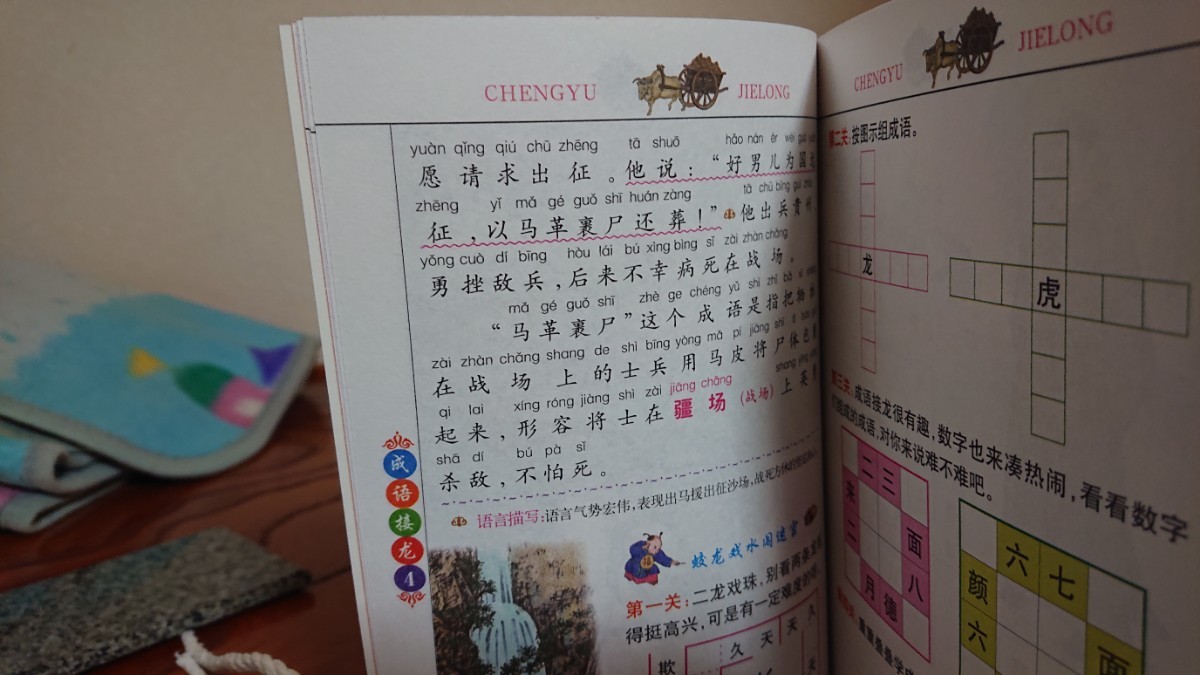 CHENGYU JIELONG
yuàn qǐng qiú chū zhēng tā shuō hǎo nán ér wèi guó
愿请求出征。他说：“好男儿为国
zhēng yǐ mǎ gé guǒ shī huán zàng tā chū bīng guì zhōu
征，以马革裹尸还葬！”他出兵贵州
yǒng cuò dí bīng hòu lái bú xìng bìng sǐ zài zhàn chǎng
勇挫敌兵，后来不幸病死在战场。
mǎ gé guǒ shī zhè ge chéng yǔ shì zhǐ bǎ
“马革裹尸”这个成语是指把
zài zhàn chǎng shang de shì bīng yòng mǎ pí jiāng shī tǐ bāo
在战场上的士兵用马皮将尸体包
qi lai xíng róng jiàng shì zài jiāng chǎng shang yīng
起来，形容将士在疆场（战场）上英
shā dí bú pà sǐ
杀敌，不怕死。
语言描写：语言气势宏伟，表现出马援出征沙场，战死方休的
蛟龙戏水闯迷宫
第一关：二龙戏珠，别看两条龙
得挺高兴，可是有一定难度的
久
久 天 天
欺
成语接龙4
CHENGYU JIELONG
第二关：按图示组成语。
龙
虎
第三关：成语接龙很有趣，数字也来凑热闹，看看数字
组成的成语，对你来说难不难吧。
二 三
来 面
二 八
月 德
六 七
颜
六 面